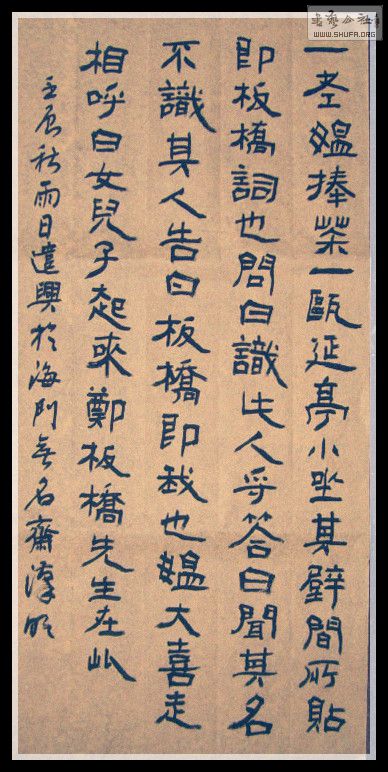 一老媪捧茶一瓯延亭小坐其壁間所貼
即板橋詞也問曰識此人乎答曰聞其名
不識其人告曰板橋即我也媪大喜走
相呼曰女兒子起來鄭板橋先生在此
壬辰秋雨日遣興於海門無名齋漢明
書藝公社
WWW.SHUFA.ORG